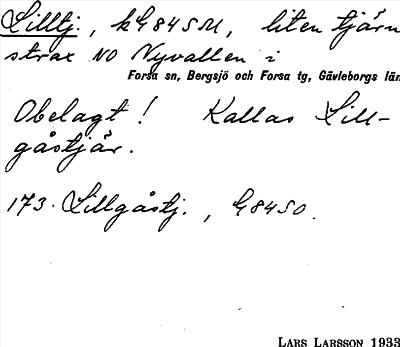 Lilltj., k G845M, liten tjärn
strax NO Nyvallen i
Forsa sn, Bergsjö och Forsa tg, Gävleborgs län
Obelagt! Kallas Lill-
gåstjär.
173. Lillgåstj., G8450.
LARS LARSSON 1933